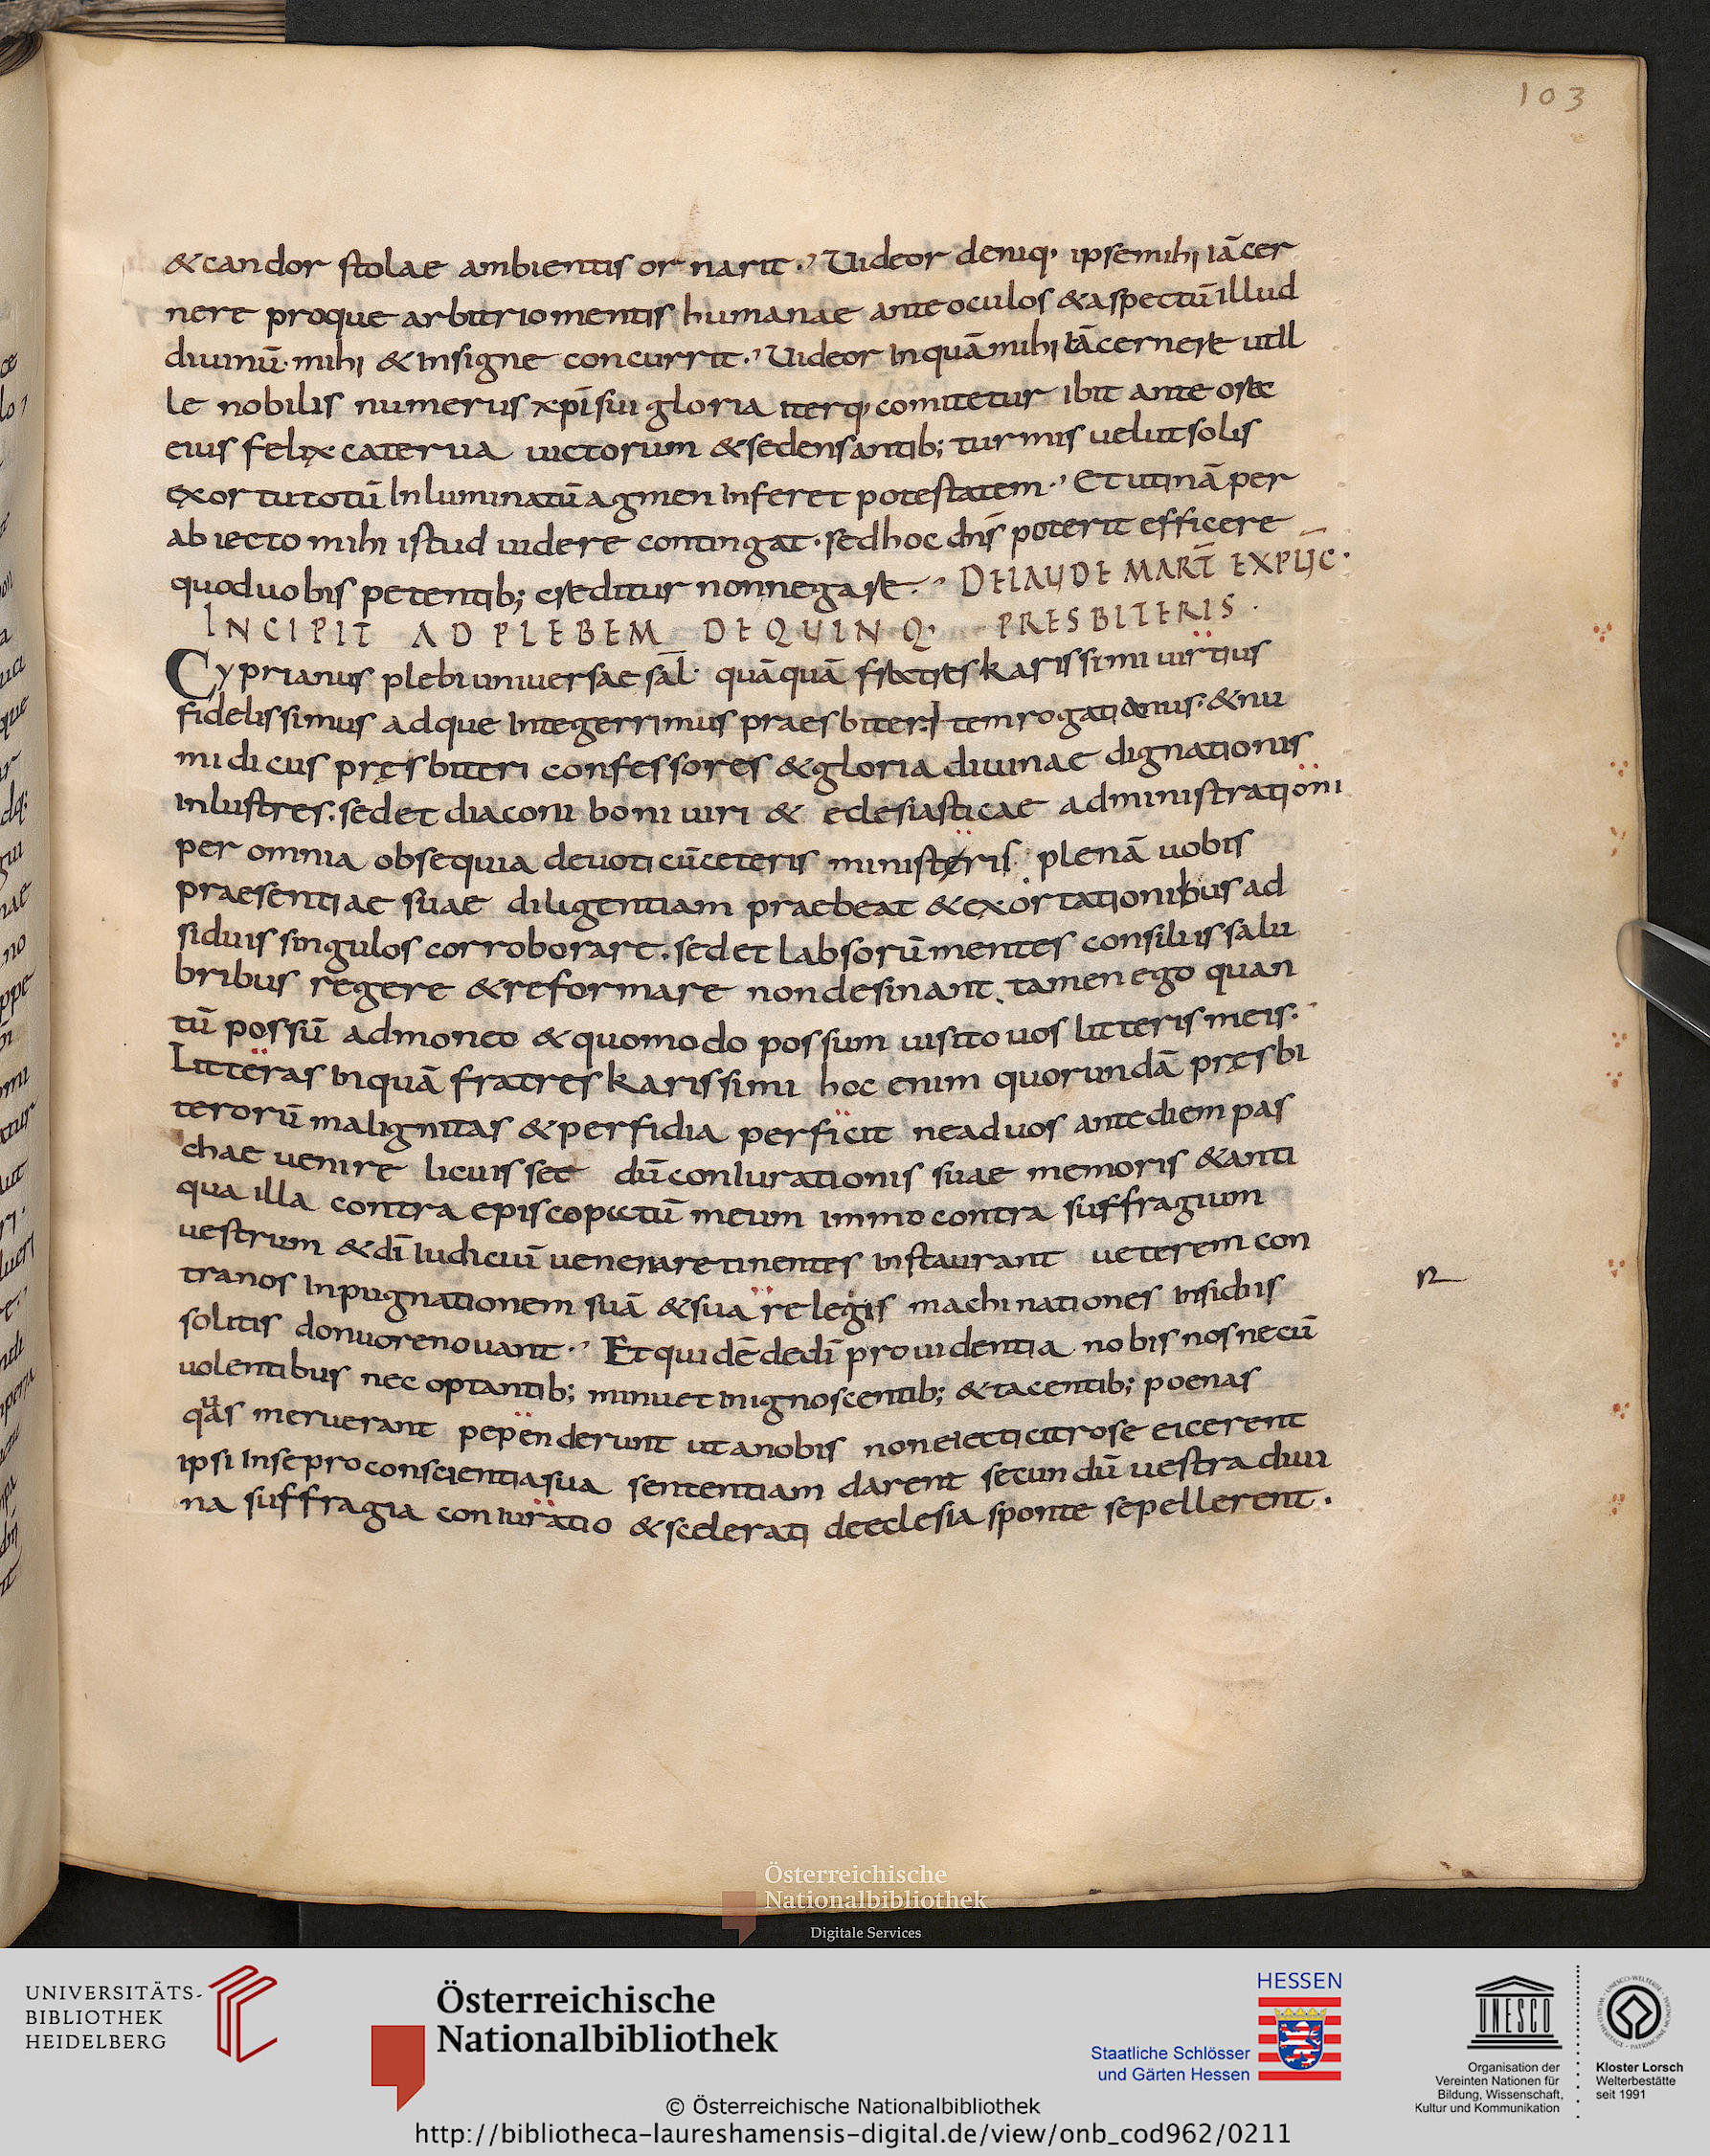 103
&candor stolae ambientis ornarit. Uideor deniq; ipse mihi iā cer
nere proque arbitrio mentis humanae ante oculos & aspectū illud
diuinū mihi & insigne concurrit. Uideor inquā mihi iā cernere ut il
le nobilis numerus xp̄i sui gloria iterq; comitetur ibit ante ore
eius felix caterua uictorum & se densantib; turmis uelut solis
exortu totū inluminatū agmen inferet potestatem. Et utinā per
abiecto mihi istud uidere contingat. sed hoc dn̄s poterit efficere
quod uobis petentib; creditur non negare. DE LAUDE MART̄ EXPLIC̄.
INCIPIT AD PLEBEM DE QUINQ. PRESBITERIS.
Cyprianus plebi uniuersae sal̄. quāquā fratres karissimi uirtius
fidelissimus adque integerrimus praesbiter. Item rogatianus. & nu
midicus pręsbiteri confessores & gloria diuinae dignationis
inlustres. sed et diaconi boni uiri & eclesiasticae administrationi
per omnia obsequia deuoti cū ceteris ministeris plenā uobis
praesentiae suae diligentiam praebeat & exortationibus ad
siduis singulos corroborare. sed et labsorū mentes consiliis salu
bribus regere & reformare non desinant. tamen ego quan
tū possū admoneo & quomodo possum uisito uos litteris meis.
Litteras inquā fratres karissimi hoc enim quorundā pręsbi
terorū malignitas & perfidia perficit ne ad uos ante diem pas
chae uenire licuisset dū coniurationis suae memoris & anti
qua illa contra episcopatū meum immo contra suffragium
uestrum & dī iudiciū uenena retinentes instaurant ueterem con
tra nos inpugnationem suā & sua relegis machinationes insidiis
solitis donuo renouant. Et quidē de dī prouidentia nobis nos necū
uolentibus nec optantib; minuet in ignoscentib; & tacentib; poenas
quas meruerant pependerunt ut a nobis non eiecti citro se eicerent
ipsi in se pro conscientia sua sententiam darent secundū uestra diui
na suffragia coniuratio & scelerati de eclesia sponte se pellerent.
Österreichische
Nationalbibliothek
Digitale Services
UNIVERSITÄTS-
BIBLIOTHEK
HEIDELBERG
Österreichische
Nationalbibliothek
HESSEN
Staatliche Schlösser
und Gärten Hessen
UNESCO
Organisation der
Vereinten Nationen für
Bildung, Wissenschaft,
Kultur und Kommunikation
Kloster Lorsch
Welterbestätte
seit 1991
© Österreichische Nationalbibliothek
http://bibliotheca-laureshamensis-digital.de/view/onb_cod962/0211